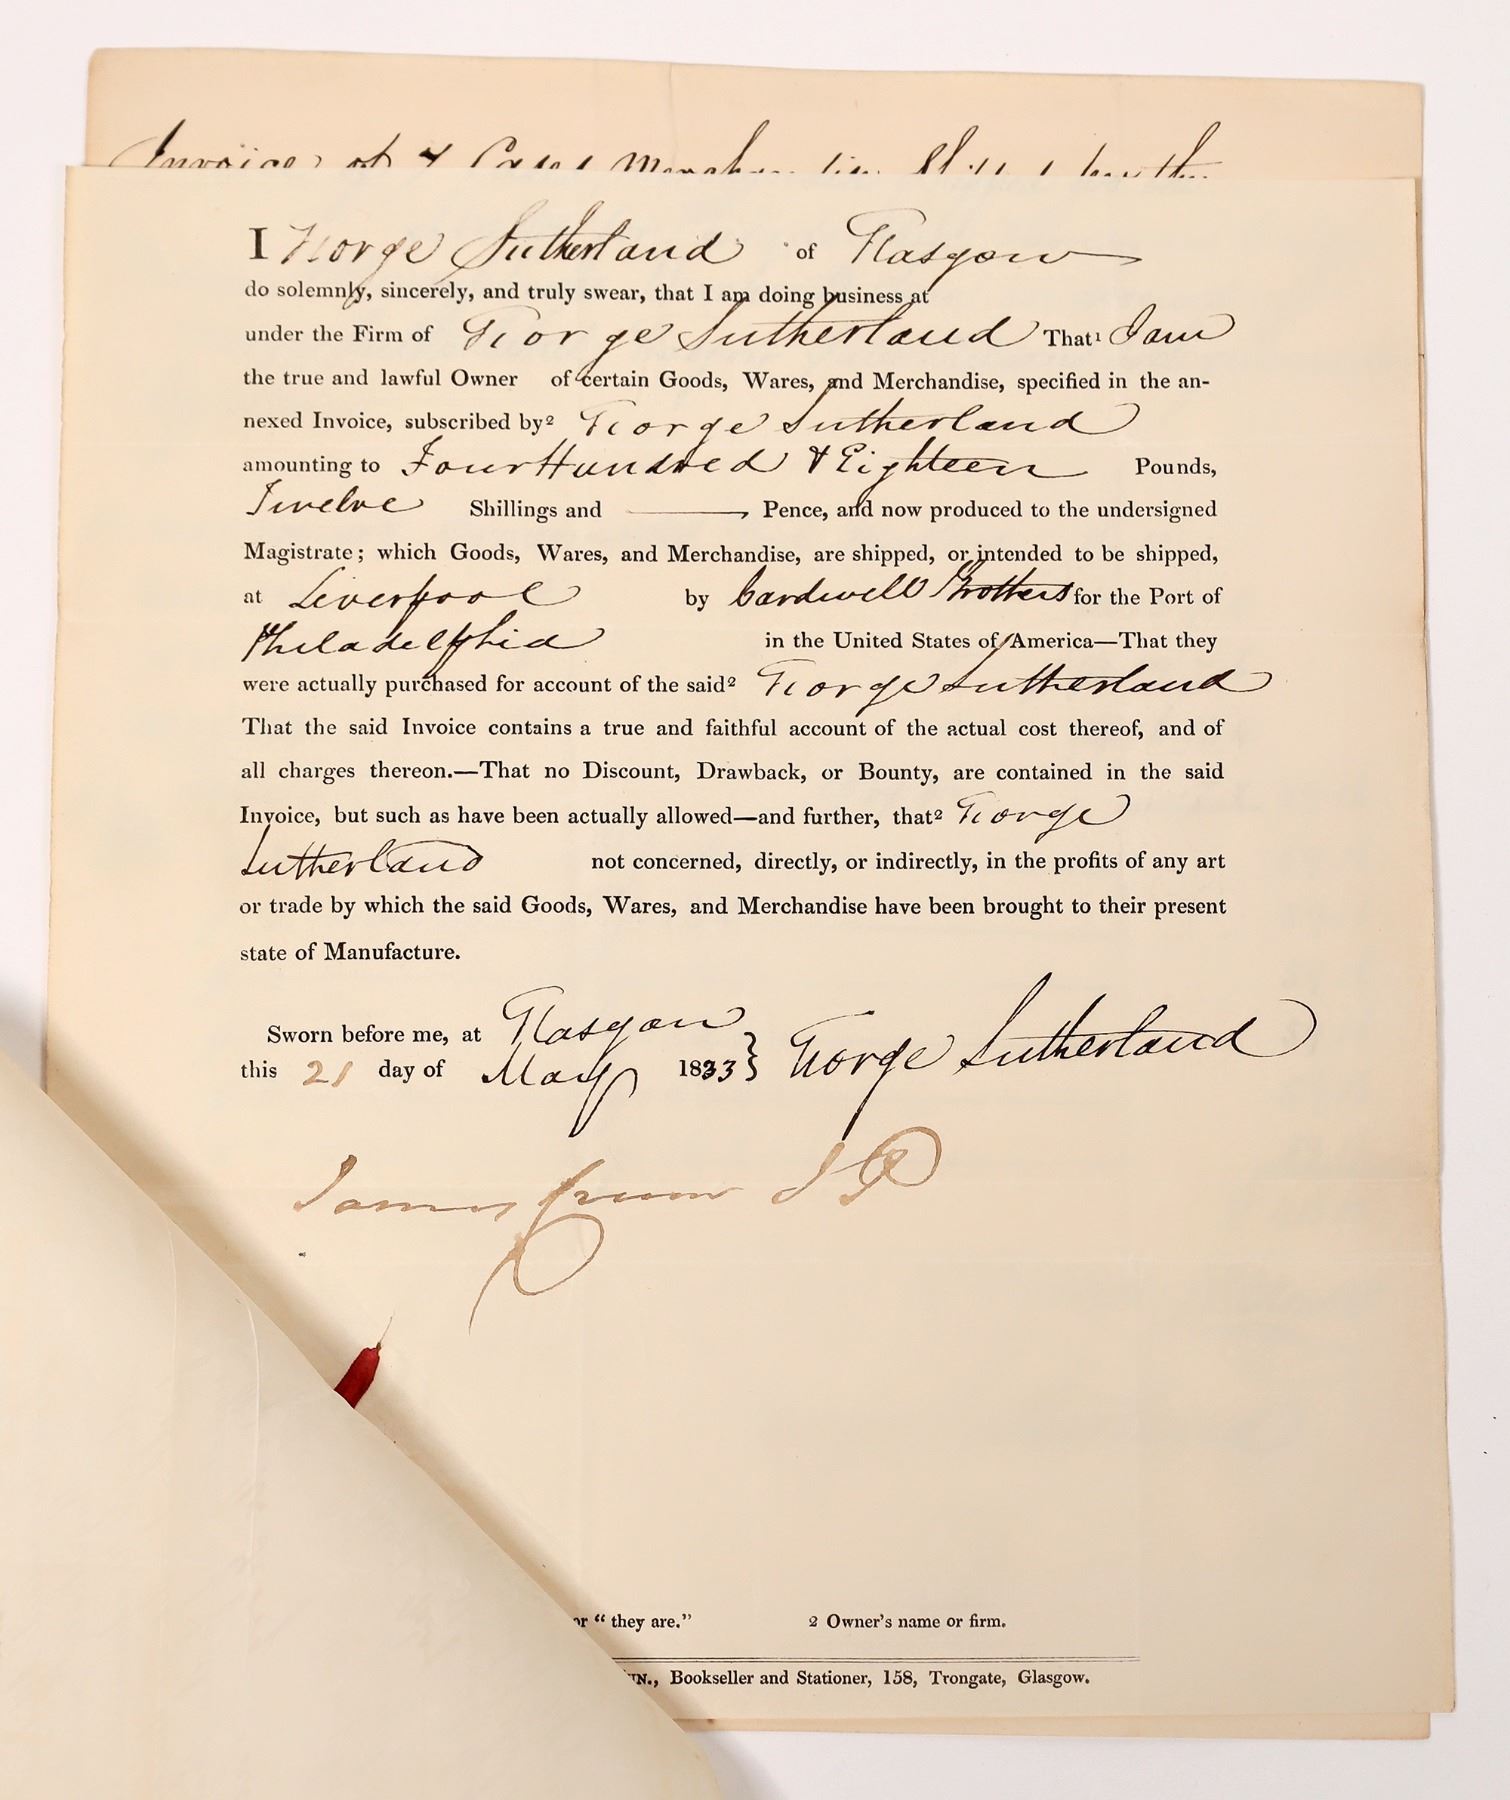 Invoice of 4 Cases Merchandise Shipped by the
I George Sutherland of Glasgow
do solemnly, sincerely, and truly swear, that I am doing business at
under the Firm of George Sutherland That¹ I am
the true and lawful Owner of certain Goods, Wares, and Merchandise, specified in the an-
nexed Invoice, subscribed by² George Sutherland
amounting to Four Hundred & Eighteen Pounds,
Twelve Shillings and ——— Pence, and now produced to the undersigned
Magistrate; which Goods, Wares, and Merchandise, are shipped, or intended to be shipped,
at Liverpool by Cardwell Brothers for the Port of
Philadelphia in the United States of America—That they
were actually purchased for account of the said² George Sutherland
That the said Invoice contains a true and faithful account of the actual cost thereof, and of
all charges thereon.—That no Discount, Drawback, or Bounty, are contained in the said
Invoice, but such as have been actually allowed—and further, that² George
Sutherland not concerned, directly, or indirectly, in the profits of any art
or trade by which the said Goods, Wares, and Merchandise have been brought to their present
state of Manufacture.
Sworn before me, at Glasgow
this 21 day of May 1833 } George Sutherland
James Crum JP
or "they are." 2 Owner's name or firm.
UN., Bookseller and Stationer, 158, Trongate, Glasgow.